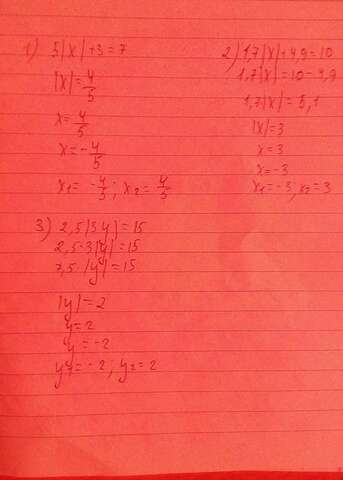 1) 5|x|+3=7
|x|=4/5
x=4/5
x=-4/5
x₁=-4/5; x₂=4/5
2) 1,7|x|+4,9=10
1,7|x|=10-4,9
1,7|x|=5,1
|x|=3
x=3
x=-3
x₁=-3; x₂=3
3) 2,5|3y|=15
2,5·3|y|=15
7,5·|y|=15
|y|=2
y=2
y=-2
y₁=-2; y₂=2